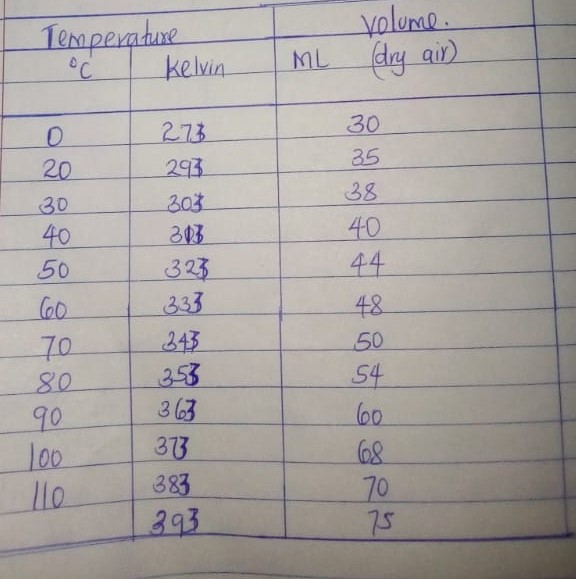 Temperature Volume.
°C Kelvin ML (dry air)
0 273 30
20 293 35
30 303 38
40 313 40
50 323 44
60 333 48
70 343 50
80 353 54
90 363 60
100 373 68
110 383 70
393 75